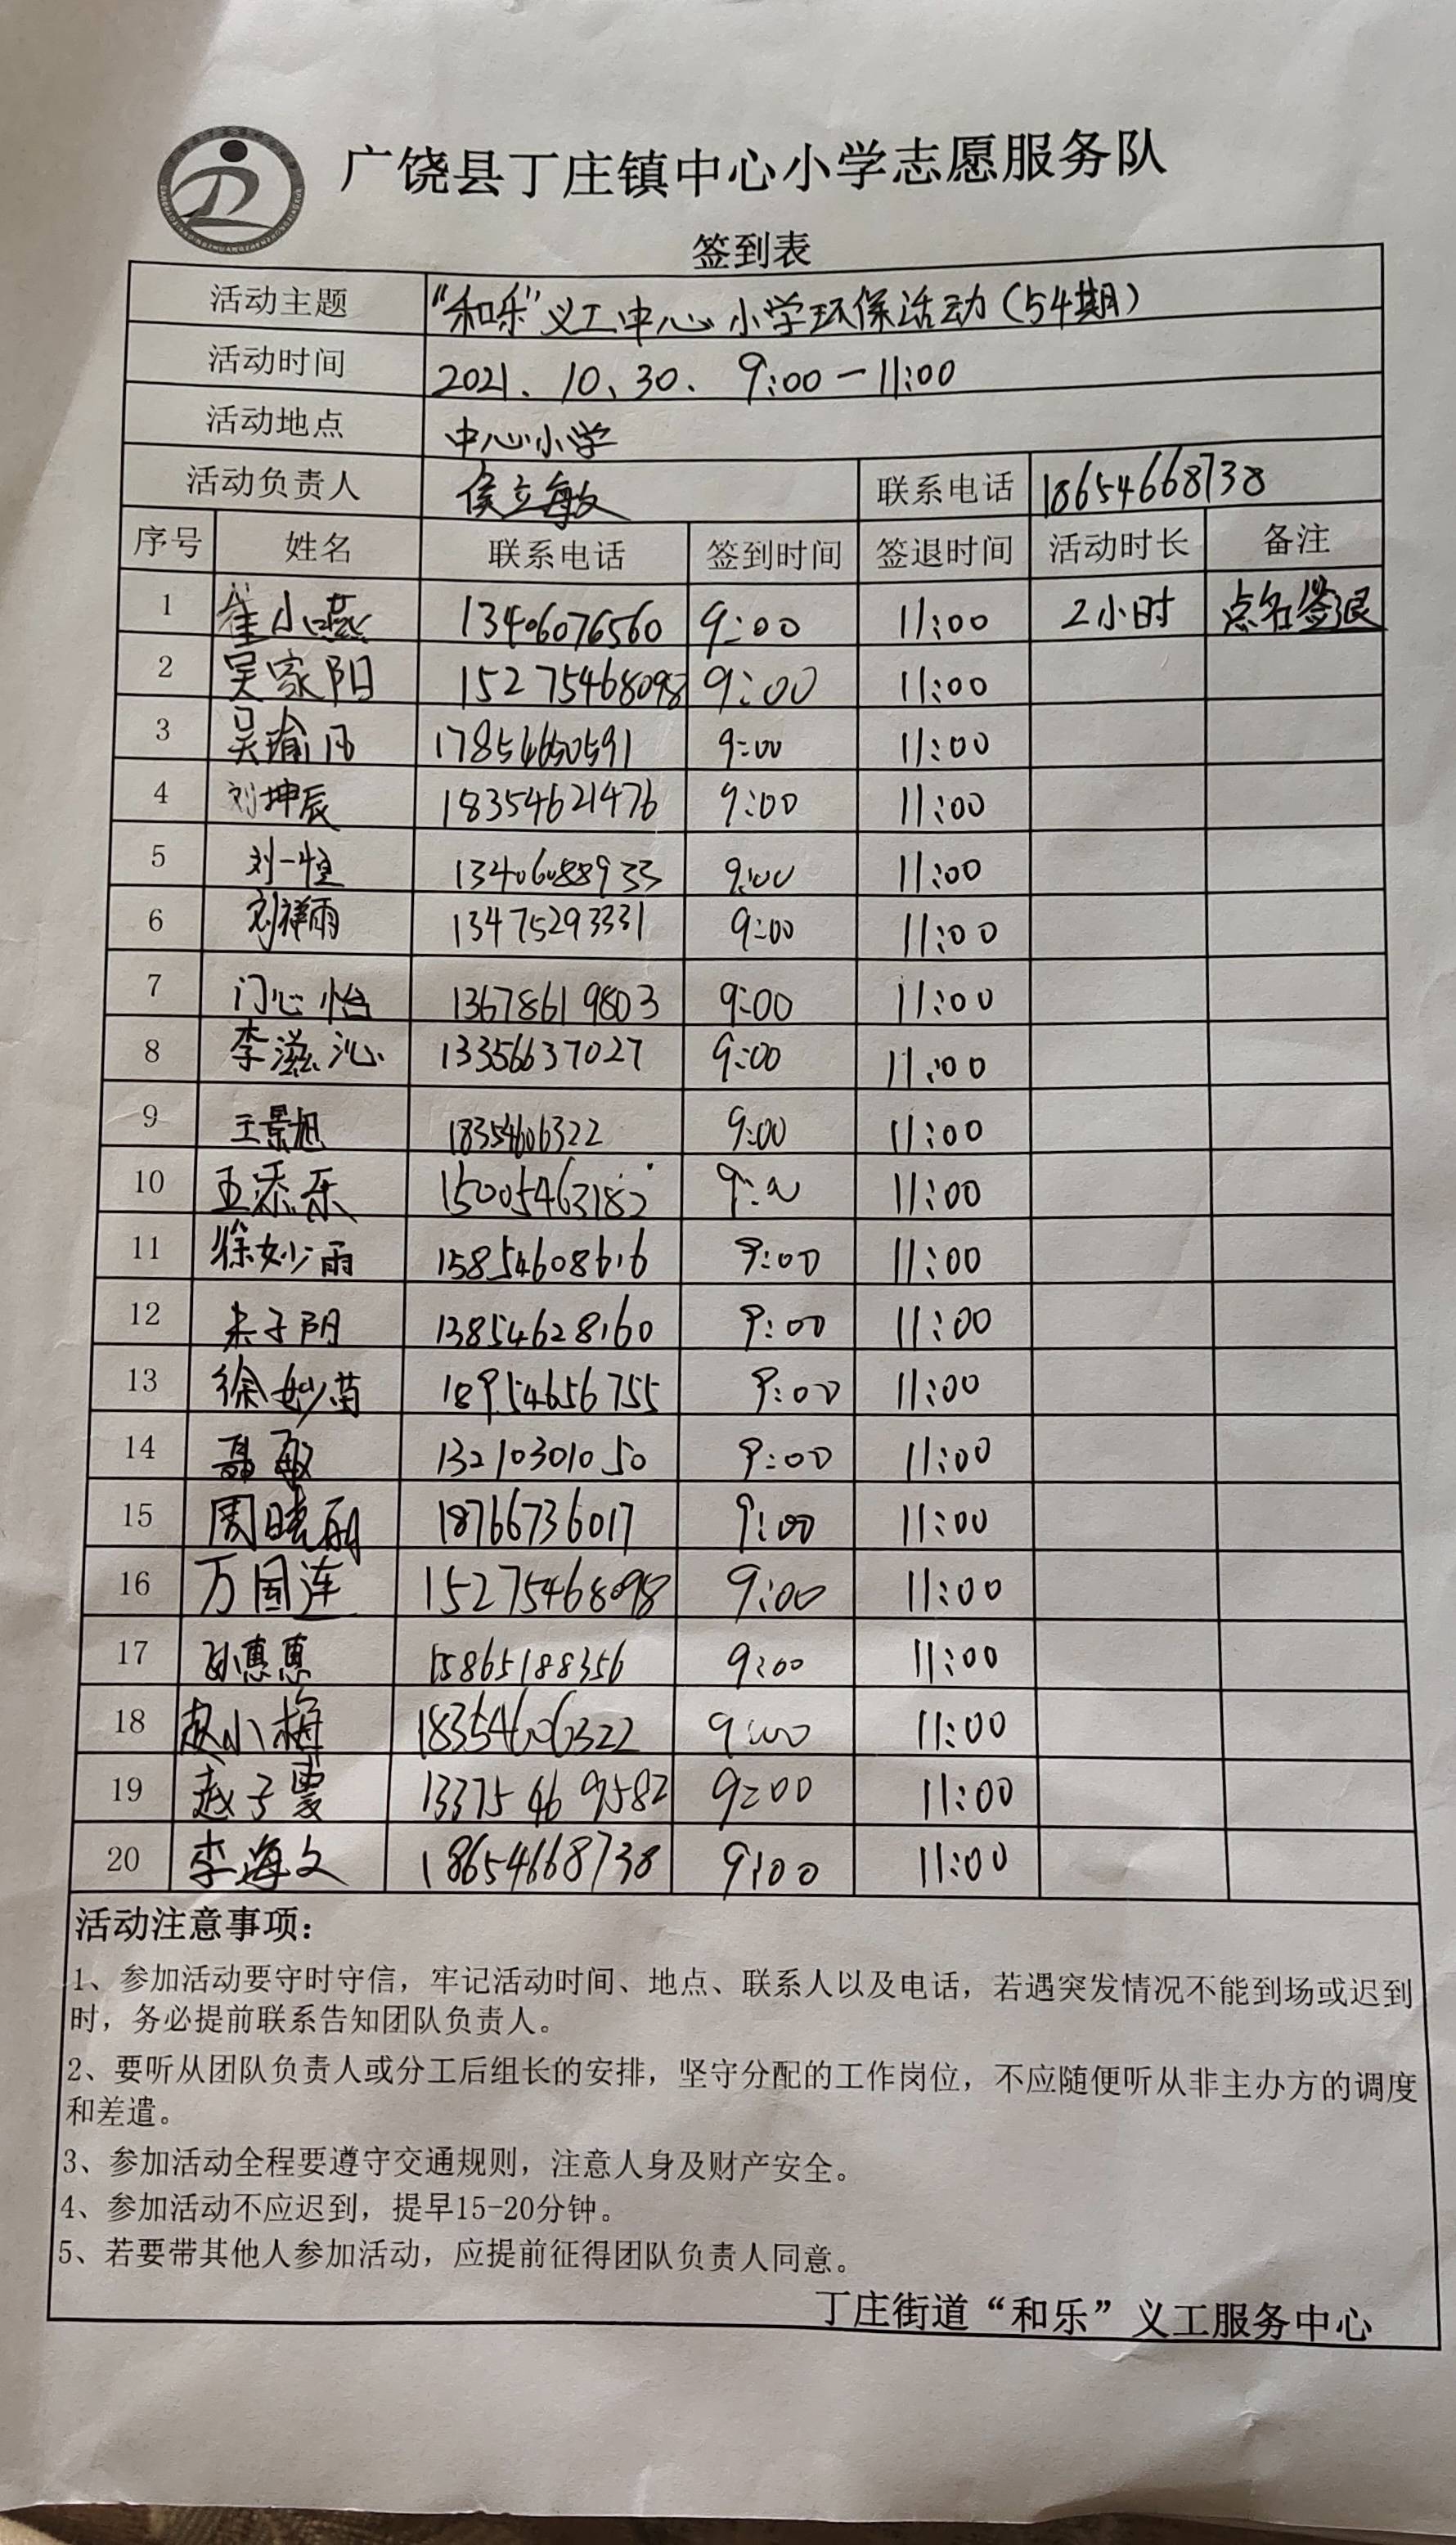 广饶县丁庄镇中心小学志愿服务队
签到表
活动主题 “和乐”义工中心小学环保活动（54期）
活动时间 2021.10.30. 9:00－11:00
活动地点 中心小学
活动负责人 侯立敏 联系电话 18654668738
序号 姓名 联系电话 签到时间 签退时间 活动时长 备注
1 崔小燕 13406076560 9:00 11:00 2小时 点名签退
2 吴家阳 15275468098 9:00 11:00
3 吴瑜 17854650591 9:00 11:00
4 刘坤辰 18354621476 9:00 11:00
5 刘一恒 13406088933 9:00 11:00
6 刘祥雨 13475293331 9:00 11:00
7 门心怡 13678619803 9:00 11:00
8 李滋沁 13356637027 9:00 11:00
9 王景旭 18354606322 9:00 11:00
10 王添乐 15005463182 9:00 11:00
11 徐妙雨 15854608616 9:00 11:00
12 朱子阳 13854628160 9:00 11:00
13 徐妙苗 18954656755 9:00 11:00
14 聂敏 13210301050 9:00 11:00
15 周晓丽 18766736017 9:00 11:00
16 万国连 15275468098 9:00 11:00
17 孙惠惠 15865188356 9:00 11:00
18 赵小梅 18354606322 9:00 11:00
19 赵子 13375469582 9:00 11:00
20 李海文 18654668738 9:00 11:00
活动注意事项：
1、参加活动要守时守信，牢记活动时间、地点、联系人以及电话，若遇突发情况不能到场或迟到
时，务必提前联系告知团队负责人。
2、要听从团队负责人或分工后组长的安排，坚守分配的工作岗位，不应随便听从非主办方的调度
和差遣。
3、参加活动全程要遵守交通规则，注意人身及财产安全。
4、参加活动不应迟到，提早15-20分钟。
5、若要带其他人参加活动，应提前征得团队负责人同意。
丁庄街道“和乐”义工服务中心